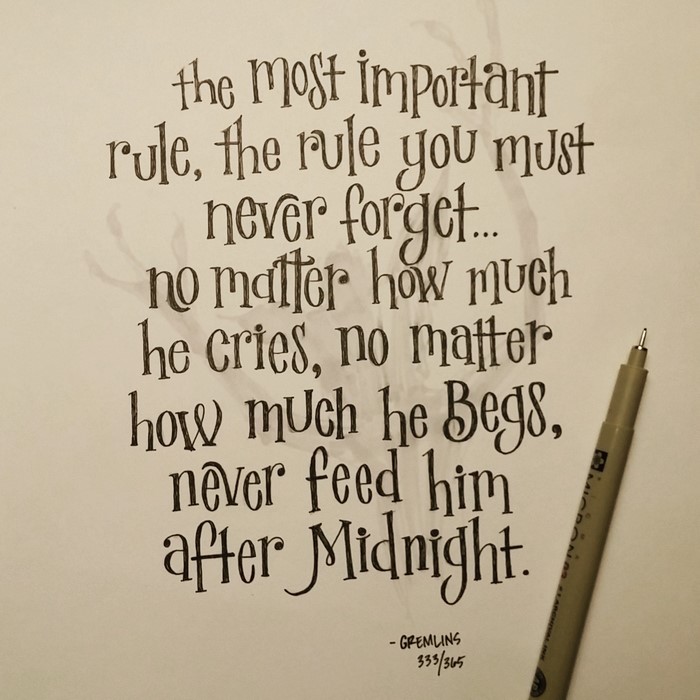 the most important
rule, the rule you must
never forget...
no matter how much
he cries, no matter
how much he Begs,
never feed him
after Midnight.
- GREMLINS
333/365
MICRON